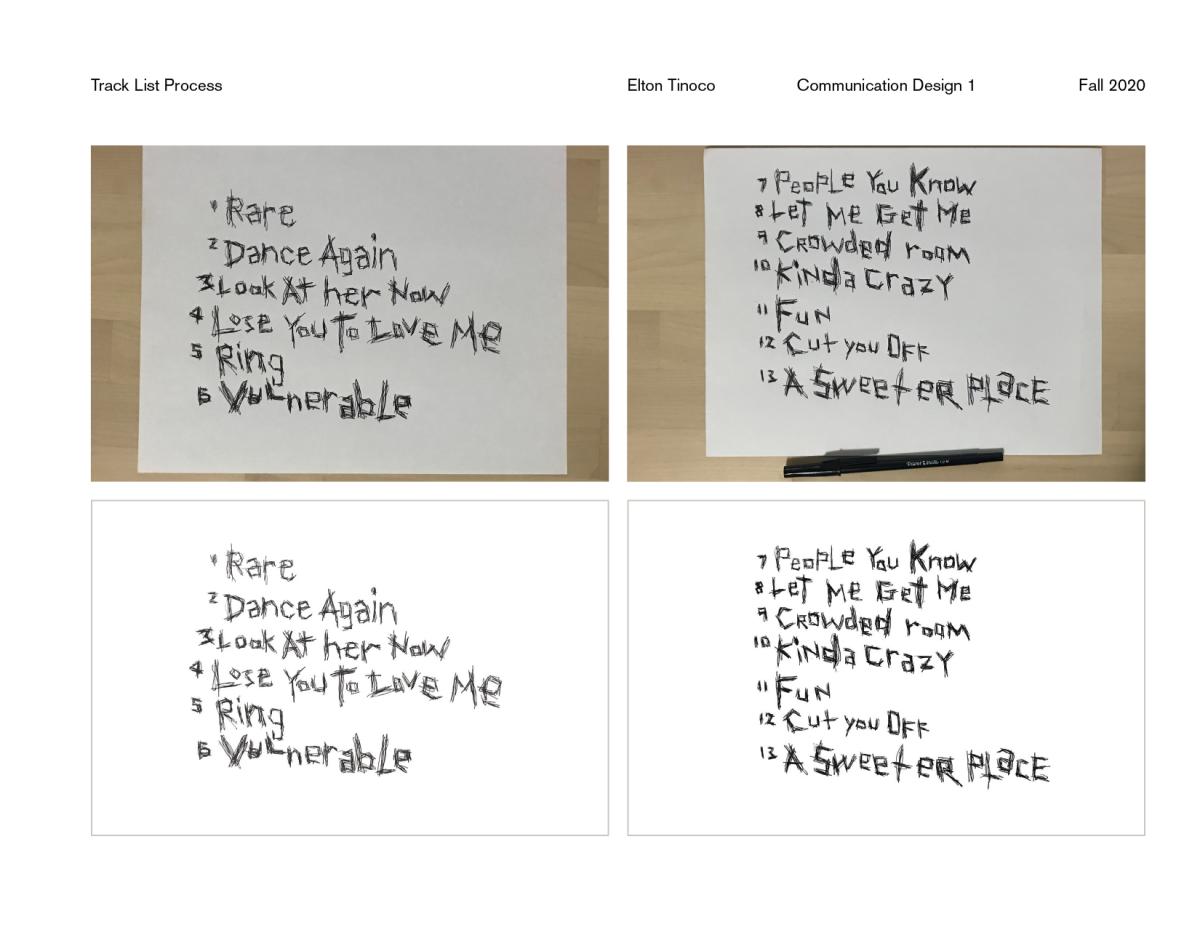 Track List Process Elton Tinoco Communication Design 1 Fall 2020
1 Rare
2 Dance Again
3 Look At her Now
4 Lose You To Love Me
5 Ring
6 Vulnerable
7 People You Know
8 Let Me Get Me
9 Crowded room
10 Kinda Crazy
11 Fun
12 Cut you Off
13 A Sweeter Place
1 Rare
2 Dance Again
3 Look At her Now
4 Lose You To Love Me
5 Ring
6 Vulnerable
7 People You Know
8 Let Me Get Me
9 Crowded room
10 Kinda Crazy
11 Fun
12 Cut you Off
13 A Sweeter Place